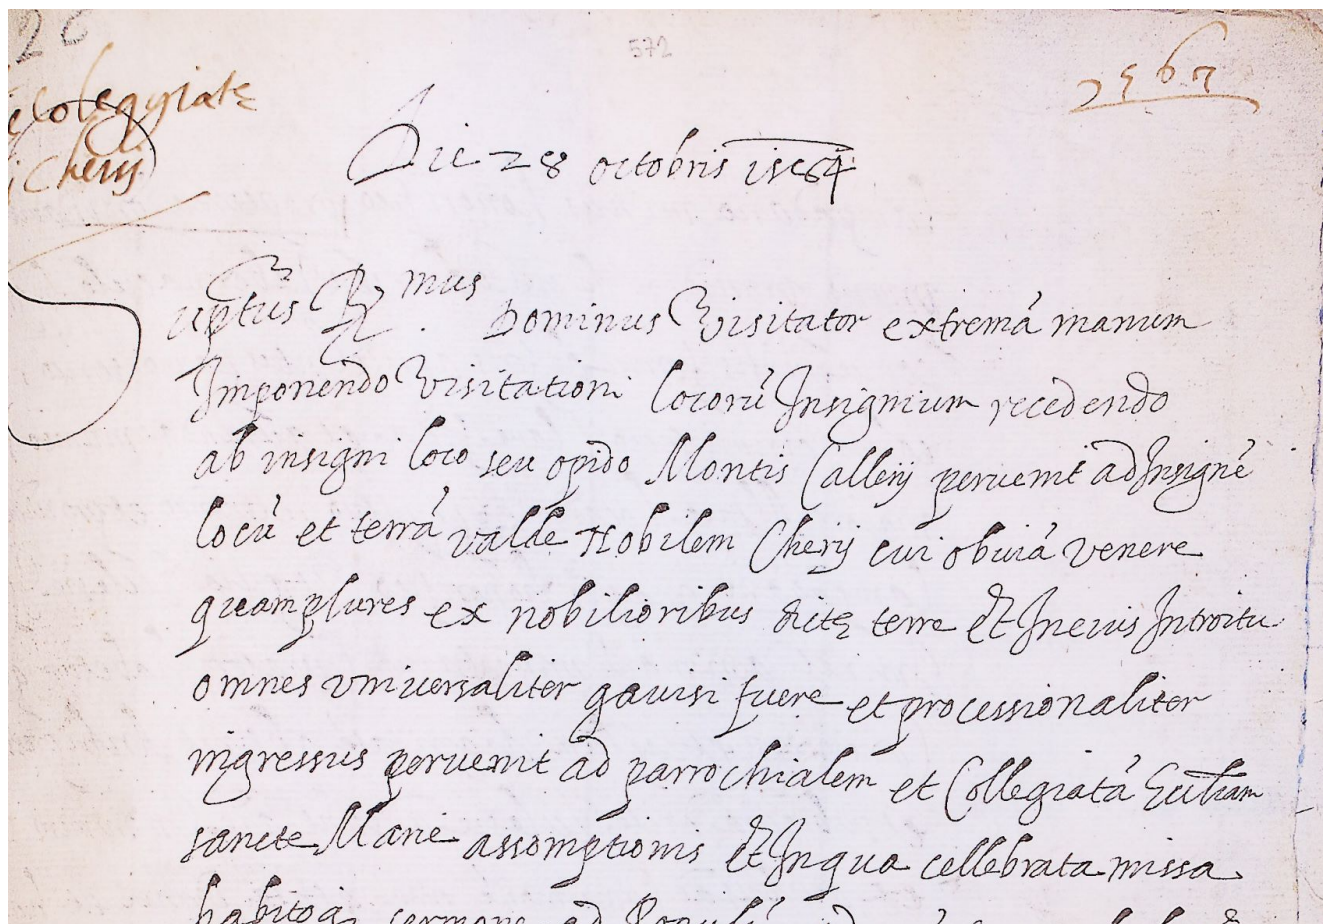 26
572
2567
colegyiate
Cherij
Die 28 octobris 1584
Suptus R.mus Dominus Visitator extremá manum
Imponendo Visitationi locorú Insignium recedendo
ab insigni loco seu opido Montis Callerij peruenit ad Insigné
locú et terrá valde Nobilem Cherij cui obuiá venere
quamplures ex nobilioribus dicte terre Et In eius Introitu
omnes vniuersaliter gauisi fuere et processionaliter
ingressus peruenit ad parrochialem et Collegiatá Eccliam
sancte Marie assomptionis Et In qua cellebrata missa
habitoq sermone ad Populú